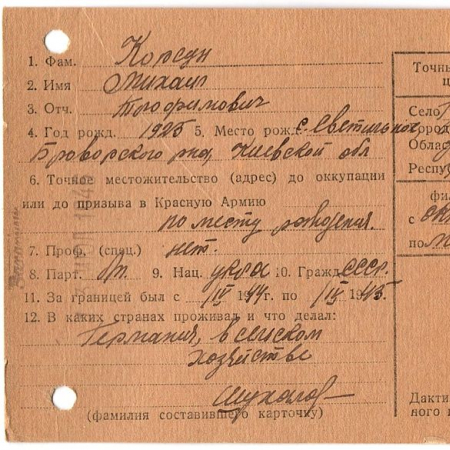 1. Фам. Корсун
2. Имя Михаил
3. Отч. Трофимович
4. Год рожд. 1925 5. Место рожд. с. Светильное
Броворского р-на Киевской обл
6. Точное местожительство (адрес) до оккупации
или до призыва в Красную Армию
по месту рождения.
7. Проф. (спец.) нет.
8. Парт. б/п 9. Нац. укра 10. Гражд. СССР.
11. За границей был с /IV 1944 г. по /IX 1945.
12. В каких странах проживал и что делал:
Германия, в сельском
хозяйстве
(фамилия составившего карточку)
Точны
ц
Село
Город
Облас
Респу
фи
с
по
Дакти
ного